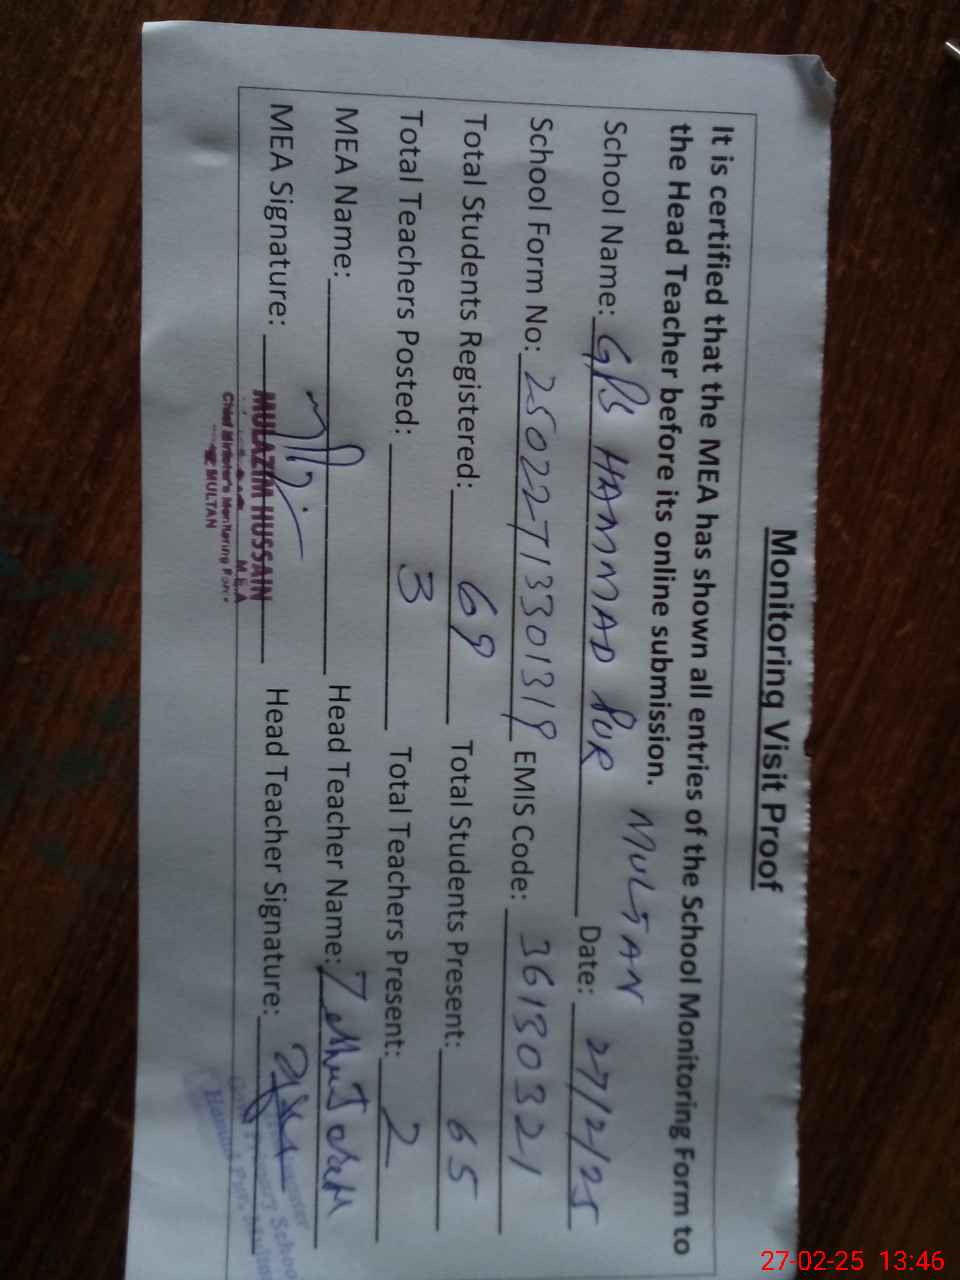 Monitoring Visit Proof
It is certified that the MEA has shown all entries of the School Monitoring Form to
the Head Teacher before its online submission.
MULTAN
School Name: GPS HAMMAD PUR Date: 27/2/25
School Form No: 25022713301319 EMIS Code: 36130321
Total Students Registered: 69 Total Students Present: 65
Total Teachers Posted: 3 Total Teachers Present: 2
MEA Name: Head Teacher Name:
MEA Signature: Head Teacher Signature:
MULAZIM HUSSAIN
M.E.A
Chief Minister's Monitoring Force
MULTAN
School
27-02-25 13:46